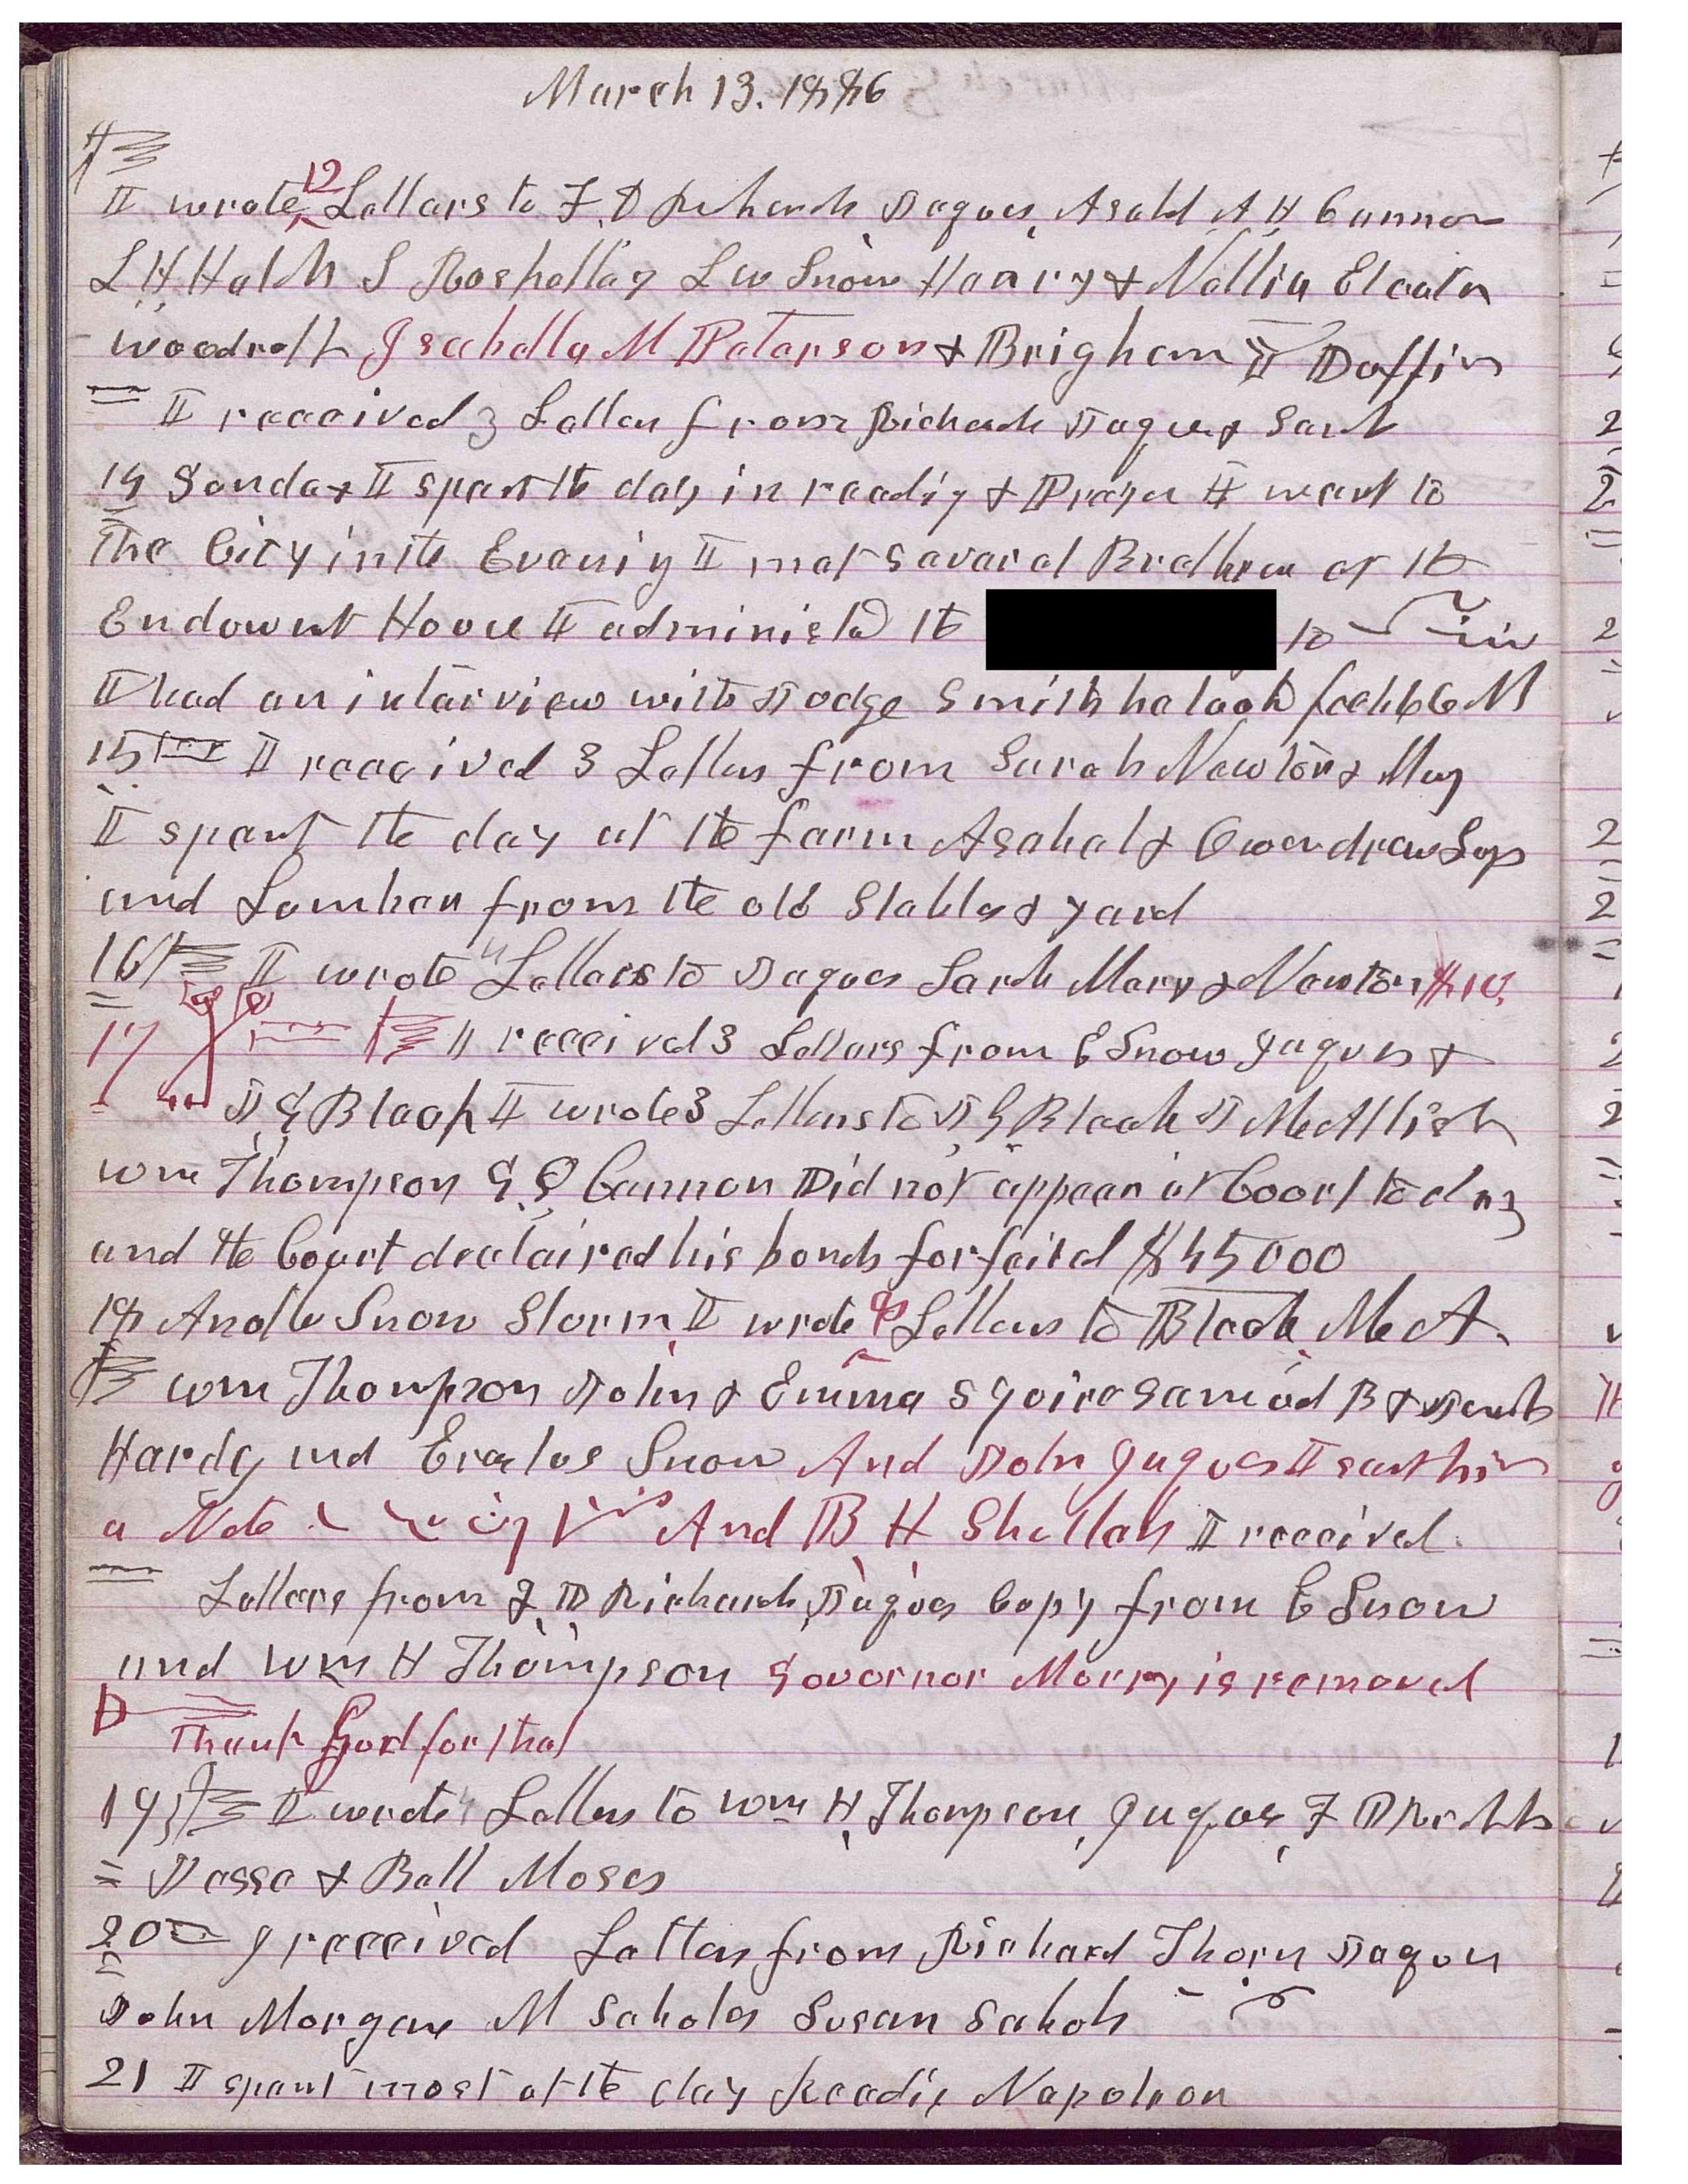 March 13. 1886
I wrote 12 Letters to F D Richards Jaques, Asahel A H Cannon
L H Hatch S Roskelley L W Snow Henry & Nellie Eleata
woodruff Isabella M Peterson & Brigham Y Duffin
I received 3 Letters from Richards Jaques & Sarah
14 Sunday I spent the day in reading & Prayer I went to
the City in the Evening I met several Brethren at the
Endowmt House I administed the to
I had an interview with Judge Smith he looked feebble
15 I received 3 Letters from Sarah Newton & Mary
I spent the day at the farm Asahel & Owen drew Logs
and Lumber from the old Stables & yard
16 I wrote 4 Letters to Jaques Sarah Mary & Newton $10.
17 I received 3 Letters from E Snow Jaques &
J G Bleak I wrote 3 Letters to J G Bleak J McAllister
Wm Thompson G Q Cannon Did not appear at Court to day
and the Court declaired his bonds forfeited $45000
18 Andother Snow Storm I wrote 8 Letters to Bleak McA.
Wm Thompson John & Emma Squire Samuel B & Jenett
Hardy and Erastus Snow And John Jaques I sent him
a Note And B H Shettah I received
Letters from F D Richards, Jaques Copy from E Snow
and Wm H Thompson Govornor Murry is removed
Thank God for that
19 I wrote 4 Letters to Wm H Thompson, Jaques, F D Richards
Jesse & Bell Moses
20 I received Letters from Richard Thorn Jaques
John Morgan M Scholes Susan Scholes
21 I spent most of the day Reading Napoleon